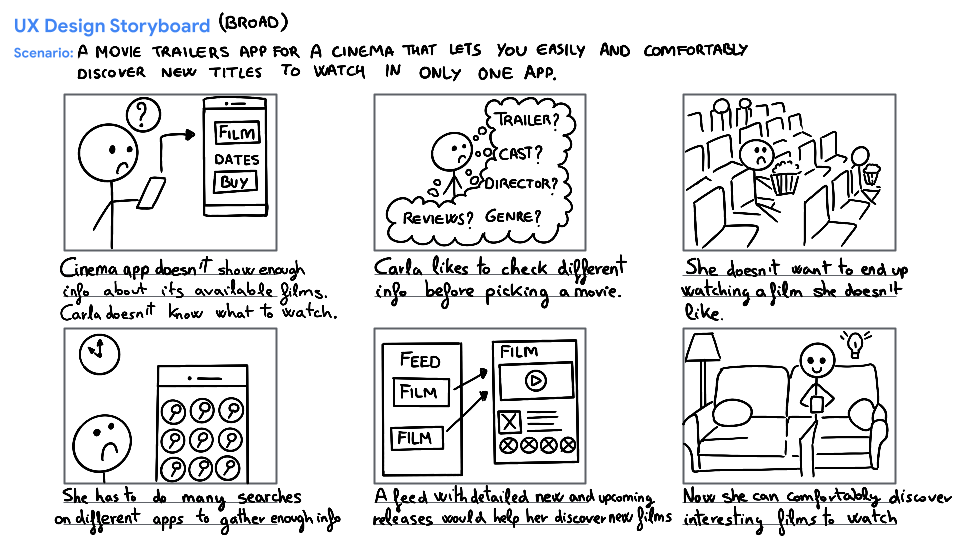 UX Design Storyboard (BROAD)
Scenario: A MOVIE TRAILERS APP FOR A CINEMA THAT LETS YOU EASILY AND COMFORTABLY
DISCOVER NEW TITLES TO WATCH IN ONLY ONE APP.
?
FILM
DATES
BUY
Cinema app doesn't show enough
info about its available films.
Carla doesn't know what to watch.
TRAILER?
CAST?
DIRECTOR?
REVIEWS? GENRE?
Carla likes to check different
info before picking a movie.
She doesn't want to end up
watching a film she doesn't
like.
She has to do many searches
on different apps to gather enough info
FEED
FILM
FILM
FILM
A feed with detailed new and upcoming
releases would help her discover new films
Now she can comfortably discover
interesting films to watch